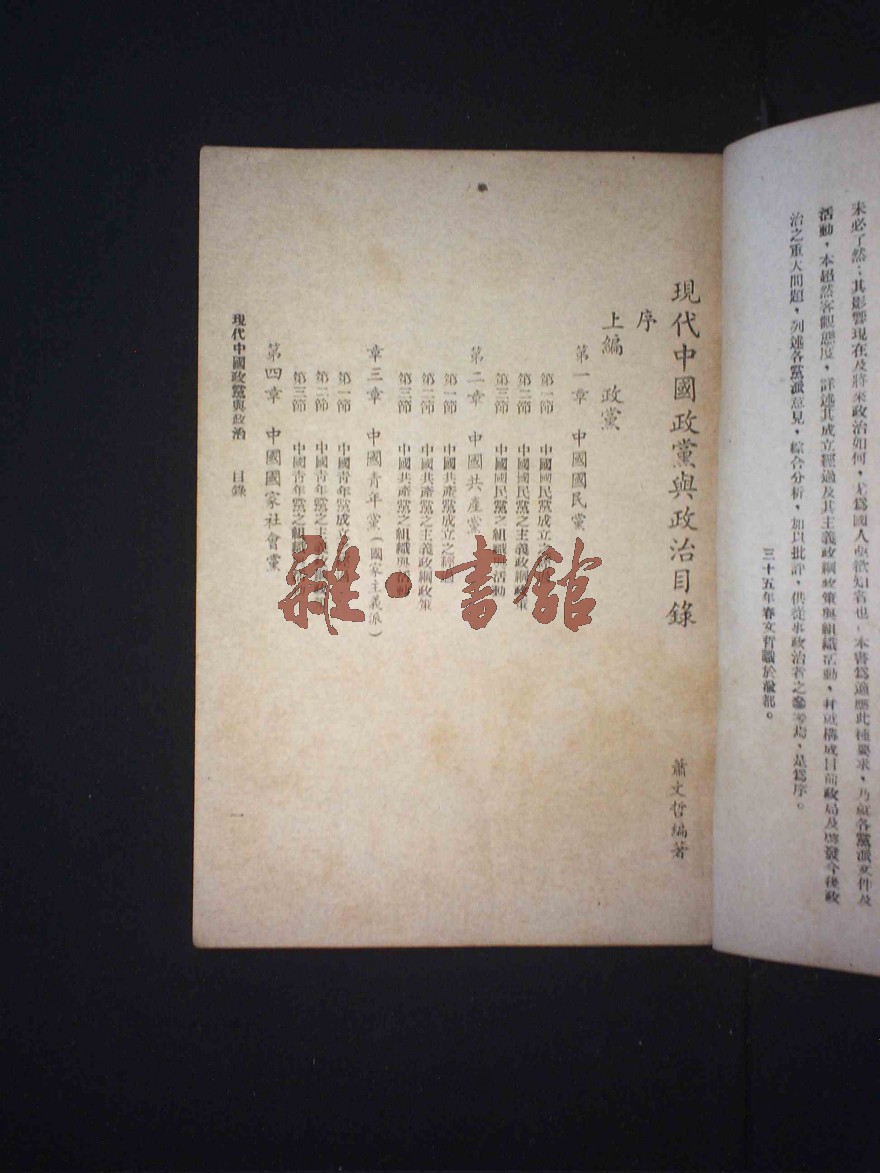 未必了然;其影響現在及將來政治如何,尤為國人亟欲知者也,本書為適應此種要求,乃就各黨派文件及
活動,本超然客觀態度,詳述其成立經過及其主義政綱政策與組織活動,并就構成目前政局及啓發今後政
治之重大問題,列述各黨派意見,綜合分析,加以批評,供從事政治者之參考焉,是為序。
三十五年春文哲識於渝都。
現代中國政黨與政治目錄 蕭文哲編著
序
上編 政黨
第一章 中國國民黨
第一節 中國國民黨成立之經過
第二節 中國國民黨之主義政綱政策
第三節 中國國民黨之組織與活動
第二章 中國共產黨
第一節 中國共產黨成立之經過
第二節 中國共產黨之主義政綱政策
第三節 中國共產黨之組織與活動
章三章 中國青年黨(國家主義派)
第一節 中國青年黨成立
第二節 中國青年黨之主義
第三節 中國青年黨之組織
第四章 中國國家社會黨
現代中國政黨與政治 目錄 一
雜·書館